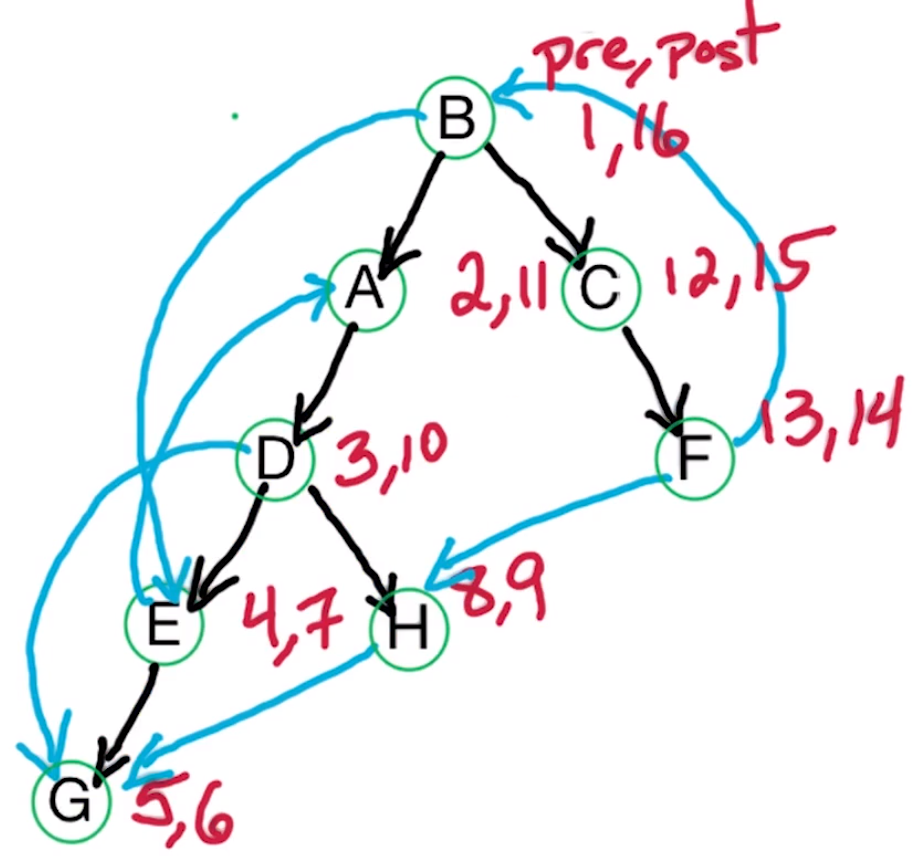 pre, post
B
1, 16
A
2, 11
C
12, 15
D
3, 10
F
13, 14
E
4, 7
H
8, 9
G
5, 6